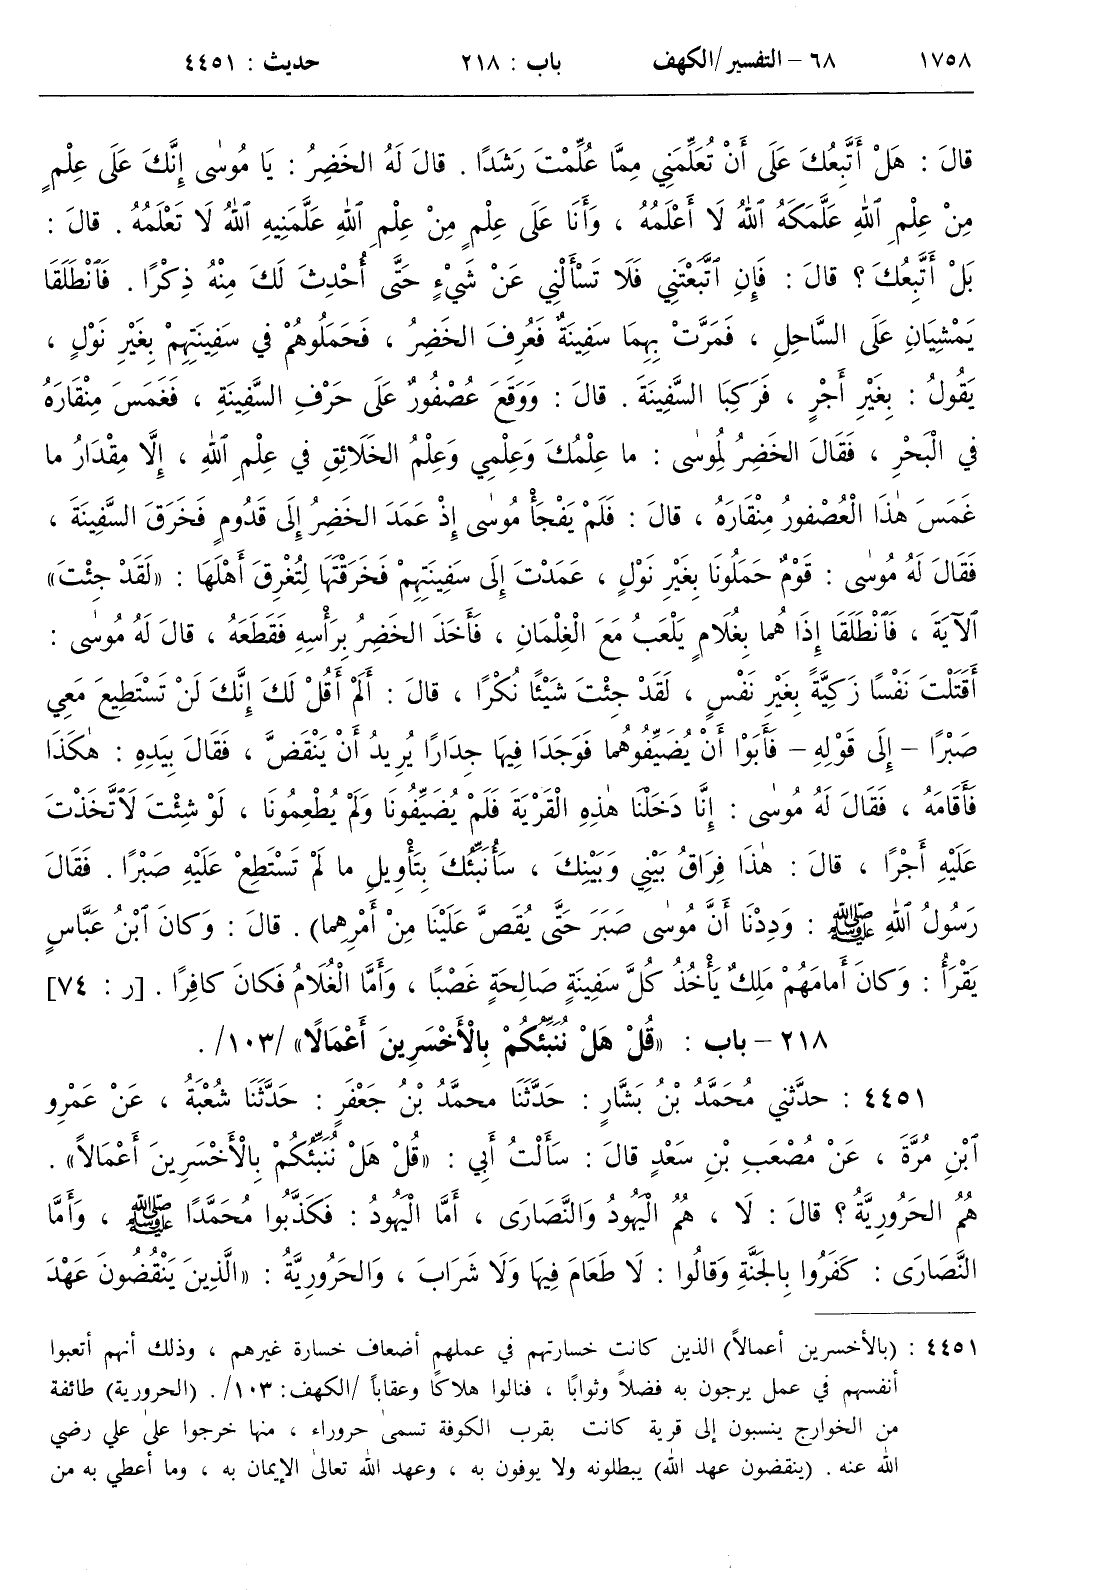 ١٧٥٨ ٦٨ – التفسير/الكهف باب : ٢١٨ حديث : ٤٤٥١
قالَ : هَلْ أَتَّبِعُكَ عَلَى أَنْ تُعَلِّمَنِي مِمَّا عُلِّمْتَ رَشَدًا . قالَ لَهُ الخَضِرُ : يَا مُوسٰى إِنَّكَ عَلَى عِلْمٍ
مِنْ عِلْمِ ٱللهِ عَلَّمَكَهُ ٱللهُ لَا أَعْلَمُهُ ، وَأَنَا عَلَى عِلْمٍ مِنْ عِلْمِ ٱللهِ عَلَّمَنِيهِ ٱللهُ لَا تَعْلَمُهُ . قالَ :
بَلْ أَتَّبِعُكَ ؟ قالَ : فَإِنِ ٱتَّبَعْتَنِي فَلَا تَسْأَلْنِي عَنْ شَيْءٍ حَتَّى أُحْدِثَ لَكَ مِنْهُ ذِكْرًا . فَٱنْطَلَقَا
يَمْشِيَانِ عَلَى السَّاحِلِ ، فَمَرَّتْ بِهِمَا سَفِينَةٌ فَعُرِفَ الخَضِرُ ، فَحَمَلُوهُمْ في سَفِينَتِهِمْ بِغَيْرِ نَوْلٍ ،
يَقُولُ : بِغَيْرِ أَجْرٍ ، فَرَكِبَا السَّفِينَةَ . قالَ : وَوَقَعَ عُصْفُورٌ عَلَى حَرْفِ السَّفِينَةِ ، فَغَمَسَ مِنْقَارَهُ
في الْبَحْرِ ، فَقَالَ الخَضِرُ لِمُوسٰى : ما عِلْمُكَ وَعِلْمِي وَعِلْمُ الخَلَائِقِ في عِلْمِ ٱللهِ ، إِلَّا مِقْدَارُ ما
غَمَسَ هٰذَا الْعُصْفورُ مِنْقَارَهُ ، قالَ : فَلَمْ يَفْجَأْ مُوسٰى إِذْ عَمَدَ الخَضِرُ إِلَى قَدُومٍ فَخَرَقَ السَّفِينَةَ ،
فَقَالَ لَهُ مُوسٰى : قَوْمٌ حَمَلُونَا بِغَيْرِ نَوْلٍ ، عَمَدْتَ إِلَى سَفِينَتِهِمْ فَخَرَقْتَهَا لِتُغْرِقَ أَهْلَهَا : «لَقَدْ جِئْتَ»
ٱلْآيَةَ ، فَٱنْطَلَقَا إِذَا هُما بِغُلَامٍ يَلْعَبُ مَعَ الْغِلْمَانِ ، فَأَخَذَ الخَضِرُ بِرَأْسِهِ فَقَطَعَهُ ، قالَ لَهُ مُوسٰى :
أَقَتَلْتَ نَفْسًا زَكِيَّةً بِغَيْرِ نَفْسٍ ، لَقَدْ جِئْتَ شَيْئًا نُكْرًا ، قالَ : أَلَمْ أَقُلْ لَكَ إِنَّكَ لَنْ تَسْتَطِيعَ مَعِي
صَبْرًا – إِلَى قَوْلِهِ – فَأَبَوْا أَنْ يُضَيِّفُوهُما فَوَجَدَا فِيهَا جِدَارًا يُرِيدُ أَنْ يَنْقَضَّ ، فَقَالَ بِيَدِهِ : هٰكَذَا
فَأَقَامَهُ ، فَقَالَ لَهُ مُوسٰى : إِنَّا دَخَلْنَا هٰذِهِ الْقَرْيَةَ فَلَمْ يُضَيِّفُونَا وَلَمْ يُطْعِمُونَا ، لَوْ شِئْتَ لَٱتَّخَذْتَ
عَلَيْهِ أَجْرًا ، قالَ : هٰذَا فِرَاقُ بَيْنِي وَبَيْنِكَ ، سَأُنَبِّئُكَ بِتَأْوِيلِ ما لَمْ تَسْتَطِعْ عَلَيْهِ صَبْرًا . فَقَالَ
رَسُولُ ٱللهِ ﷺ : وَدِدْنَا أَنَّ مُوسٰى صَبَرَ حَتَّى يُقَصَّ عَلَيْنَا مِنْ أَمْرِهِما) . قالَ : وَكانَ ٱبْنُ عَبَّاسٍ
يَقْرَأُ : وَكانَ أَمامَهُمْ مَلِكٌ يَأْخُذُ كُلَّ سَفِينَةٍ صَالِحَةٍ غَصْبًا ، وَأَمَّا الْغُلَامُ فَكانَ كافِرًا . [ر : ٧٤]
٢١٨ – باب : «قُلْ هَلْ نُنَبِّئُكُمْ بِالْأَخْسَرِينَ أَعْمَالًا» /١٠٣/ .
٤٤٥١ : حدَّثني مُحَمَّدُ بْنُ بَشَّارٍ : حَدَّثَنَا محمَّدُ بْنُ جَعْفَرٍ : حَدَّثَنَا شُعْبَةُ ، عَنْ عَمْرِو
ٱبْنِ مُرَّةَ ، عَنْ مُصْعَبِ بْنِ سَعْدٍ قالَ : سَأَلْتُ أَبِي : «قُلْ هَلْ نُنَبِّئُكُمْ بِالْأَخْسَرِينَ أَعْمَالاً» .
هُمُ الحَرُورِيَّةُ ؟ قالَ : لَا ، هُمُ الْيَهُودُ وَالنَّصَارَى ، أَمَّا الْيَهُودُ : فَكَذَّبُوا مُحَمَّدًا ﷺ ، وَأَمَّا
النَّصَارَى : كَفَرُوا بِالجَنَّةِ وَقالُوا : لَا طَعَامَ فِيهَا وَلَا شَرَابَ ، وَالحَرُورِيَّةُ : «الَّذِينَ يَنْقُضُونَ عَهْدَ
٤٤٥١ : (بالأخسرين أعمالاً) الذين كانت خسارتهم في عملهم أضعاف خسارة غيرهم ، وذلك أنهم أتعبوا
أنفسهم في عمل يرجون به فضلاً وثوابًا ، فنالوا هلاكًا وعقاباً /الكهف: ١٠٣/. (الحرورية) طائفة
من الخوارج ينسبون إلى قرية كانت بقرب الكوفة تسمىٰ حروراء ، منها خرجوا علىٰ علي رضي
الله عنه . (ينقضون عهد الله) يبطلونه ولا يوفون به ، وعهد الله تعالىٰ الإيمان به ، وما أعطي به من